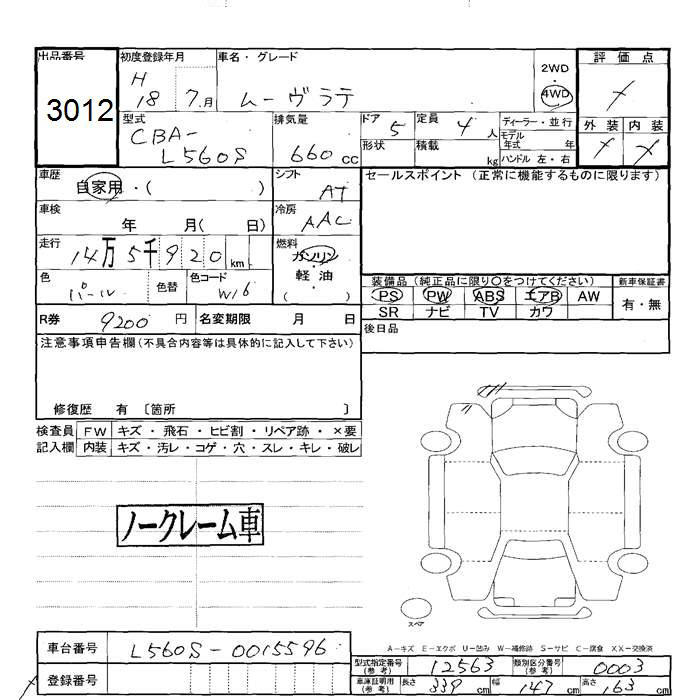 出品番号 初度登録年月 車名・グレード 評価点
3012 H 18 7月 ムーヴラテ 2WD 4WD
外装 内装
型式 排気量 ドア 5 定員 4 人 ディーラー・並行
CBA-L560S 660cc 形状 積載 kg モデル年式 年
ハンドル 左・右
車歴 自家用・( ) シフト AT セールスポイント (正常に機能するものに限ります)
車検 年 月( 日) 冷房 AAC
走行 14万5千920km 燃料 ガソリン・軽油( )
色 パール 色替 色コード W16
装備品 (純正品に限り○をつけてください) 新車保証書
PS PW ABS エアB AW 有・無
SR ナビ TV カワ
R券 9200 円 名変期限 月 日 後日品
注意事項申告欄(不具合内容等は具体的に記入して下さい)
修復歴 有 〔箇所 〕
検査員 FW キズ・飛石・ヒビ割・リペア跡・×要
記入欄 内装 キズ・汚レ・コゲ・穴・スレ・キレ・破レ
ノークレーム車
スペア
A-キズ E-エクボ U-凹み W-補修跡 S-サビ C-腐食 XX-交換済
車台番号 L560S-0015596
型式指定番号(参考) 12563 類別区分番号(参考) 0003
登録番号
車庫証明用(参考) 長さ 339cm 幅 147cm 高さ 163cm